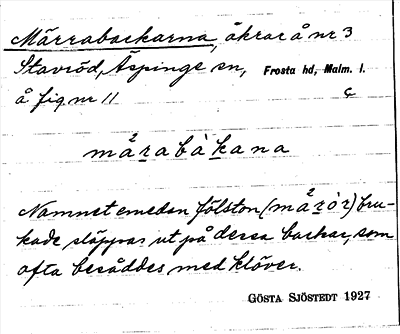 Märrabackarna, åkrar å nr 3
Stavröd, Äspinge sn, Frosta hd, Malm. l.
å fig. nr 11 C
mä²rabàkana
Namnet emedan fölston (mä²ròr) bru-
kade släppas ut på dessa backar, som
ofta besåddes med klöver.
GÖSTA SJÖSTEDT 1927